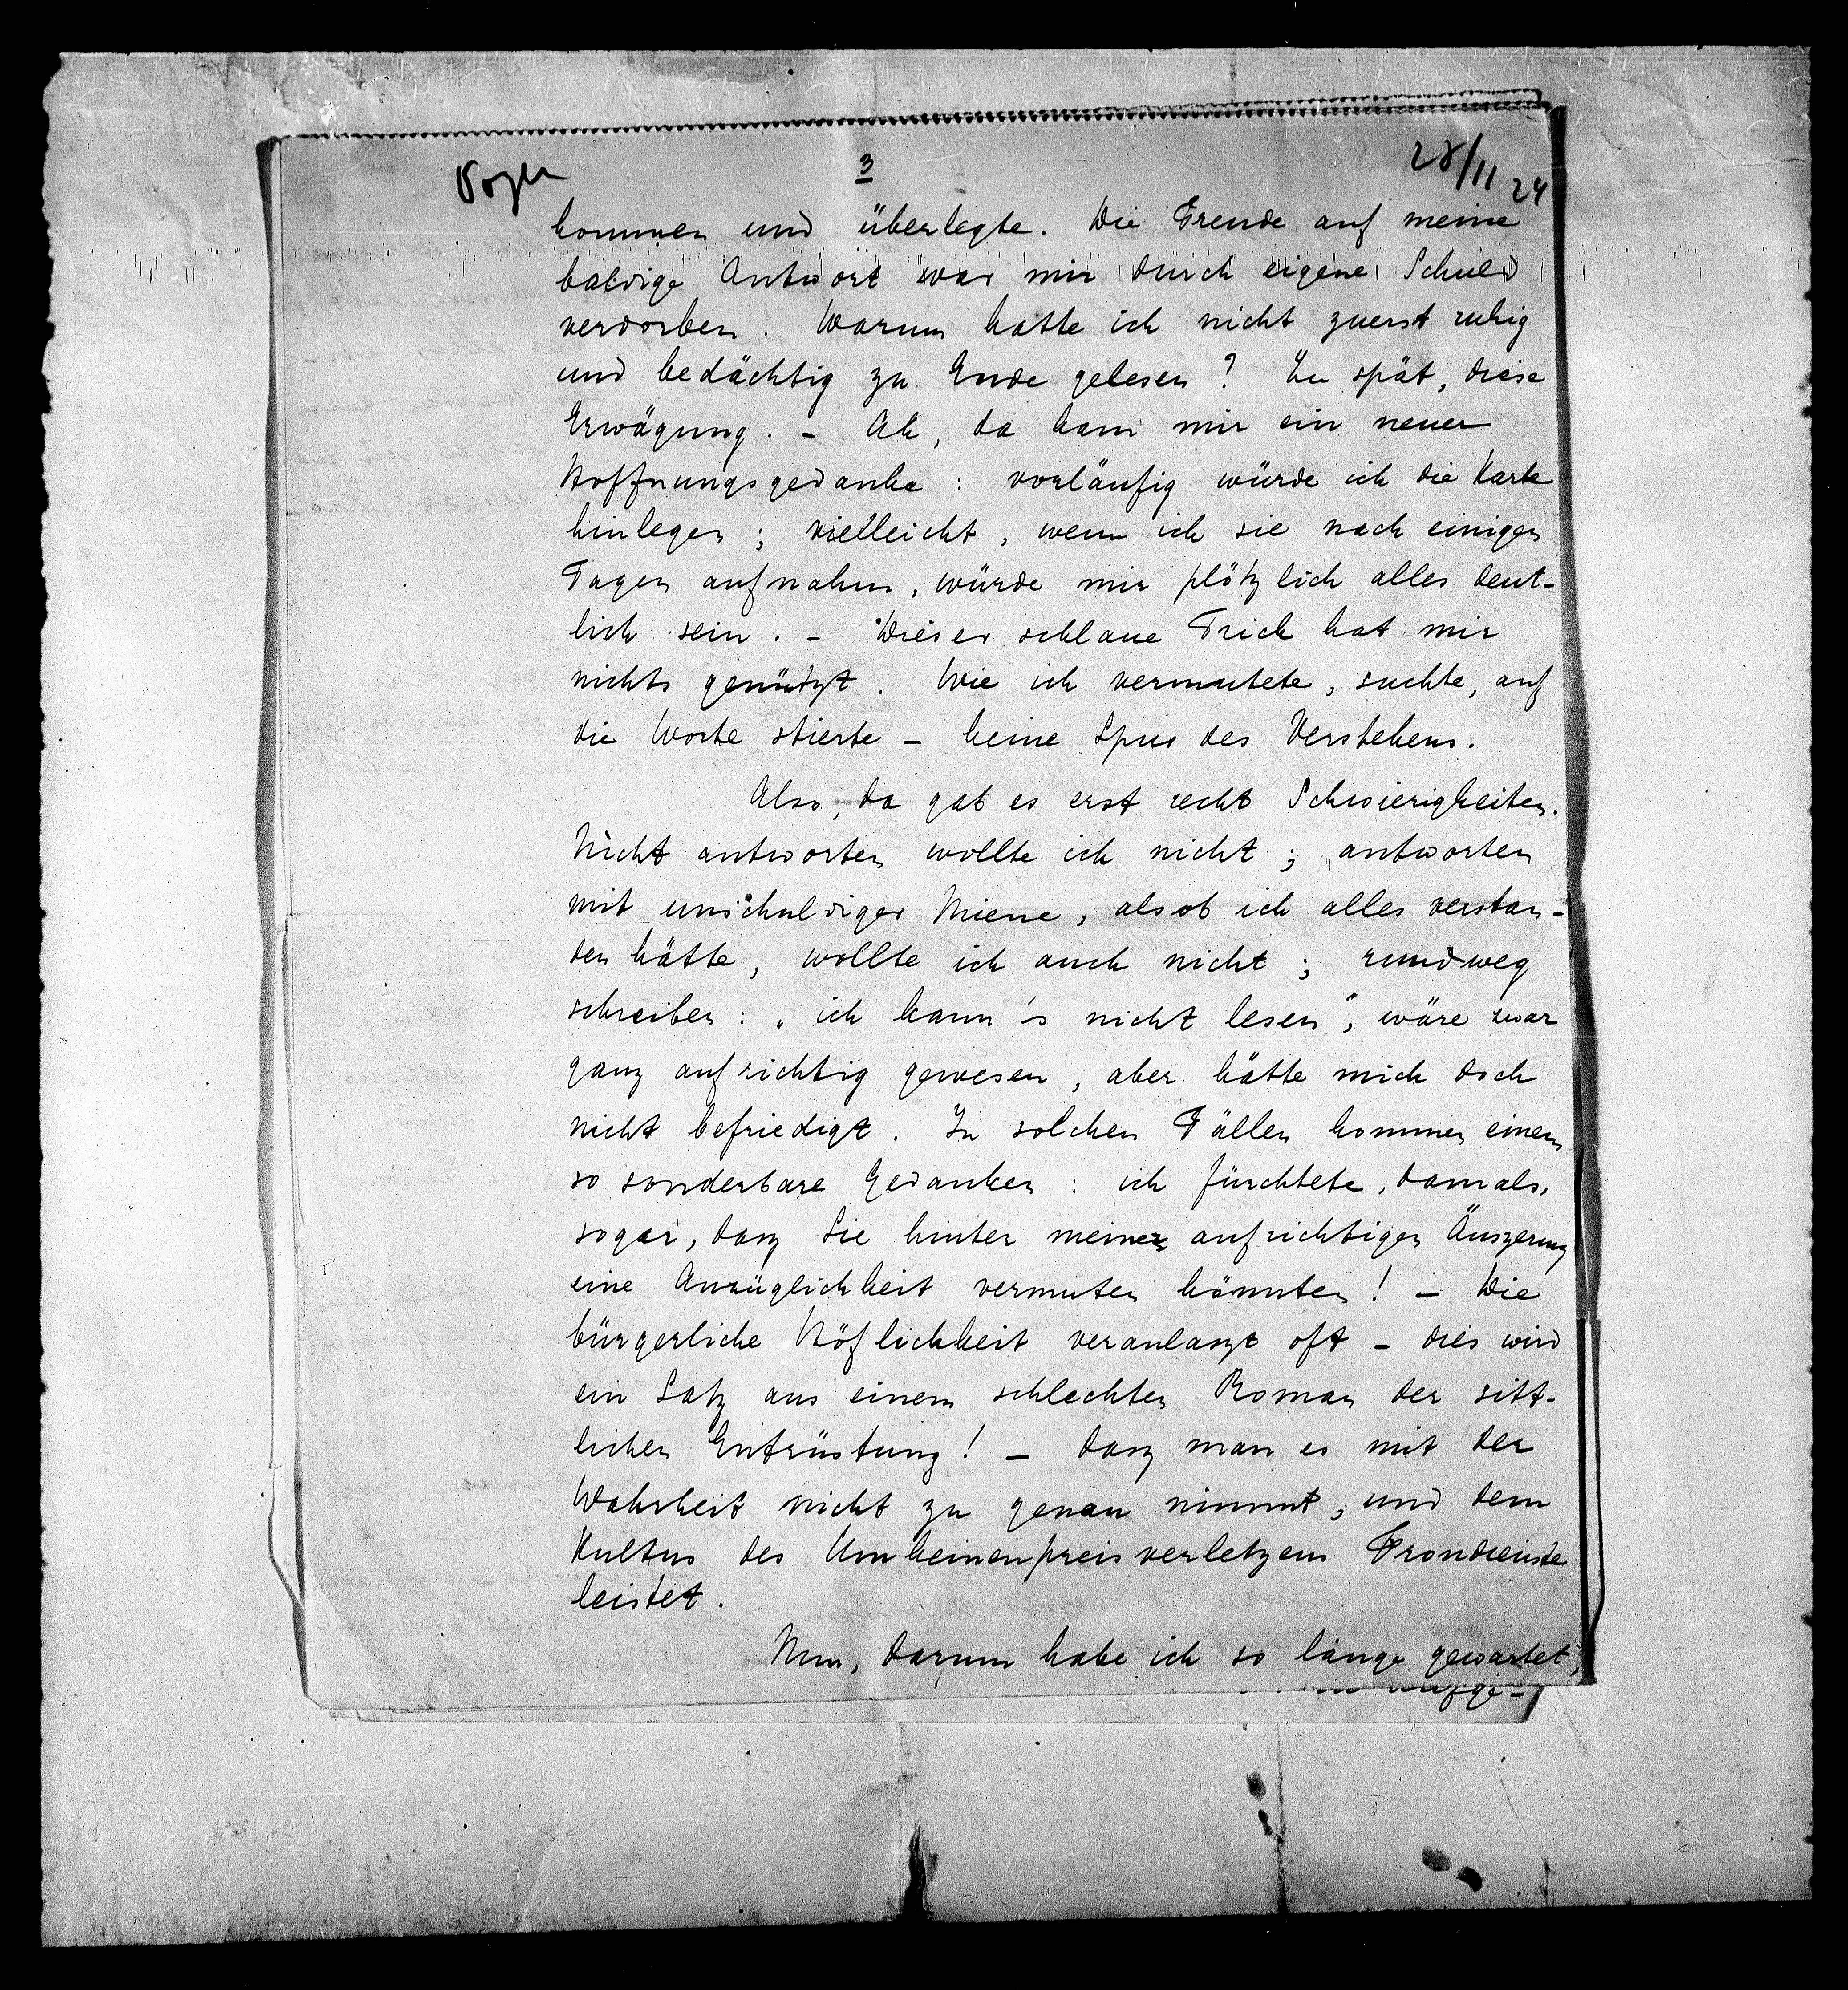 3
28/11 24
kommen und überlegte. Die Freude auf meine
baldige Antwort war mir durch eigene Schuld
verdorben. Warum hatte ich nicht zuerst ruhig
und bedächtig zu Ende gelesen? Zu spät, diese
Erwägung. – Ah, da kam mir ein neuer
Hoffnungsgedanke: vorläufig würde ich die Karte
hinlegen; vielleicht, wenn ich sie nach einigen
Tagen aufnahm, würde mir plötzlich alles deut-
lich sein. – Dieser schlaue Trick hat mir
nichts genützt. Wie ich vermutete, suchte, auf
die Worte stierte – keine Spur des Verstehens.
Also, da gab es erst recht Schwierigkeiten.
Nicht antworten wollte ich nicht; antworten
mit unschuldiger Miene, alsob ich alles verstan-
den hätte, wollte ich auch nicht; rundweg
schreiben: „ich kann's nicht lesen“, wäre zwar
ganz aufrichtig gewesen, aber hätte mich doch
nicht befriedigt. In solchen Fällen kommen einem
so sonderbare Gedanken: ich fürchtete, damals,
sogar, dasz Sie hinter meiner aufrichtigen Äuszerung
eine Anzüglichkeit vermuten könnten! – Die
bürgerliche Höflichkeit veranlaszt oft – dies wird
ein Satz aus einem schlechten Roman der sitt-
lichen Entrüstung! – dasz man es mit der
Wahrheit nicht zu genau nimmt, und dem
Kultus des Umkeinenpreisverletzens Frondienste
leistet.
Nun, darum habe ich so lange gewartet;